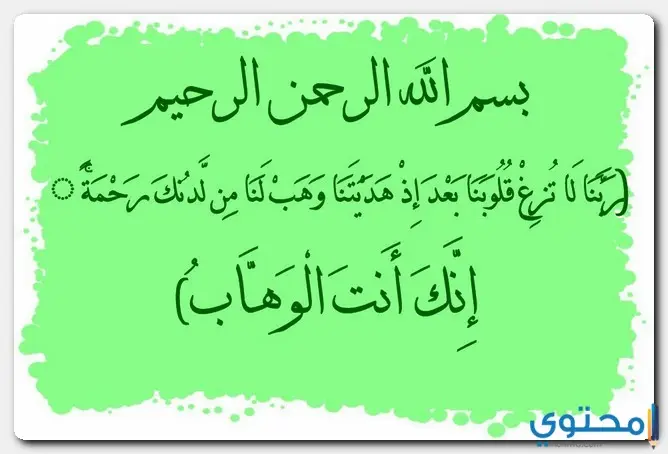 بسم الله الرحمن الرحيم
(رَبَّنَا لَا تُزِغْ قُلُوبَنَا بَعْدَ إِذْ هَدَيْتَنَا وَهَبْ لَنَا مِن لَّدُنكَ رَحْمَةً ۚ
إِنَّكَ أَنتَ الْوَهَّابُ)
محتوي